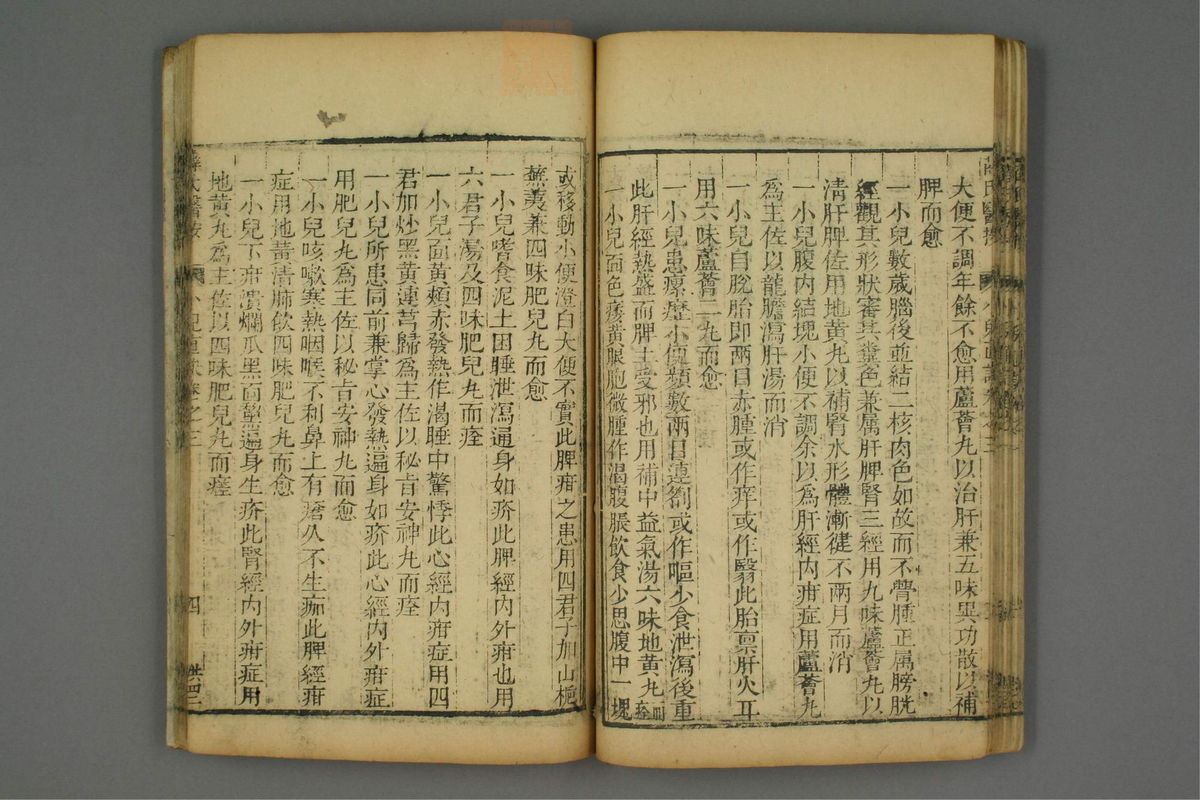 大便不調年餘不愈用蘆薈丸以治肝兼五味異功散以補
脾而愈
一小兒數歲腦後並結二核肉色如故而不㿈腫正属膀胱
經觀其形狀審其糞色兼属肝脾腎三經用九味蘆薈丸以
淸肝脾佐用地黃丸以補腎水形體漸徤不两月而消
一小兒腹内結塊小便不調余以爲肝經内疳症用蘆薈丸
爲主佐以龍膽瀉肝湯而消
一小兒自脫胎即兩目赤腫或作痒或作翳此胎禀肝火耳
用六味蘆薈二丸而愈
一小兒患瘰癧小便頻數兩目連劄或作嘔少食泄瀉後重
此肝經熱盛而脾土受邪也用補中益氣湯六味地黃丸而痊
一小兒面色痿黃眼胞微腫作渴腹脹飮食少思腹中一塊
或移動小便澄白大便不實此脾疳之患用四君子加山梔
蕪荑兼四味肥兒丸而愈
一小兒嗜食泥土困睡泄瀉遍身如疥此脾經内外疳也用
六君子湯及四味肥兒丸而痊
一小兒面黃頰赤發熱作渴睡中驚悸此心經内疳症用四
君加炒黑黃連芎歸爲主佐以秘旨安神丸而痊
一小兒所患同前兼掌心發熱遍身如疥此心經内外疳症
用肥兒丸爲主佐以秘旨安神丸而愈
一小兒咳嗽寒熱咽喉不利鼻上有瘡久不生痂此脾經疳
症用地黃淸肺飮四味肥兒丸而愈
一小兒下疳潰爛爪黑面黧遍身生疥此腎經内外疳症用
地黃丸爲主佐以四味肥兒丸而痊
薛氏醫按 小兒直訣卷之三 四